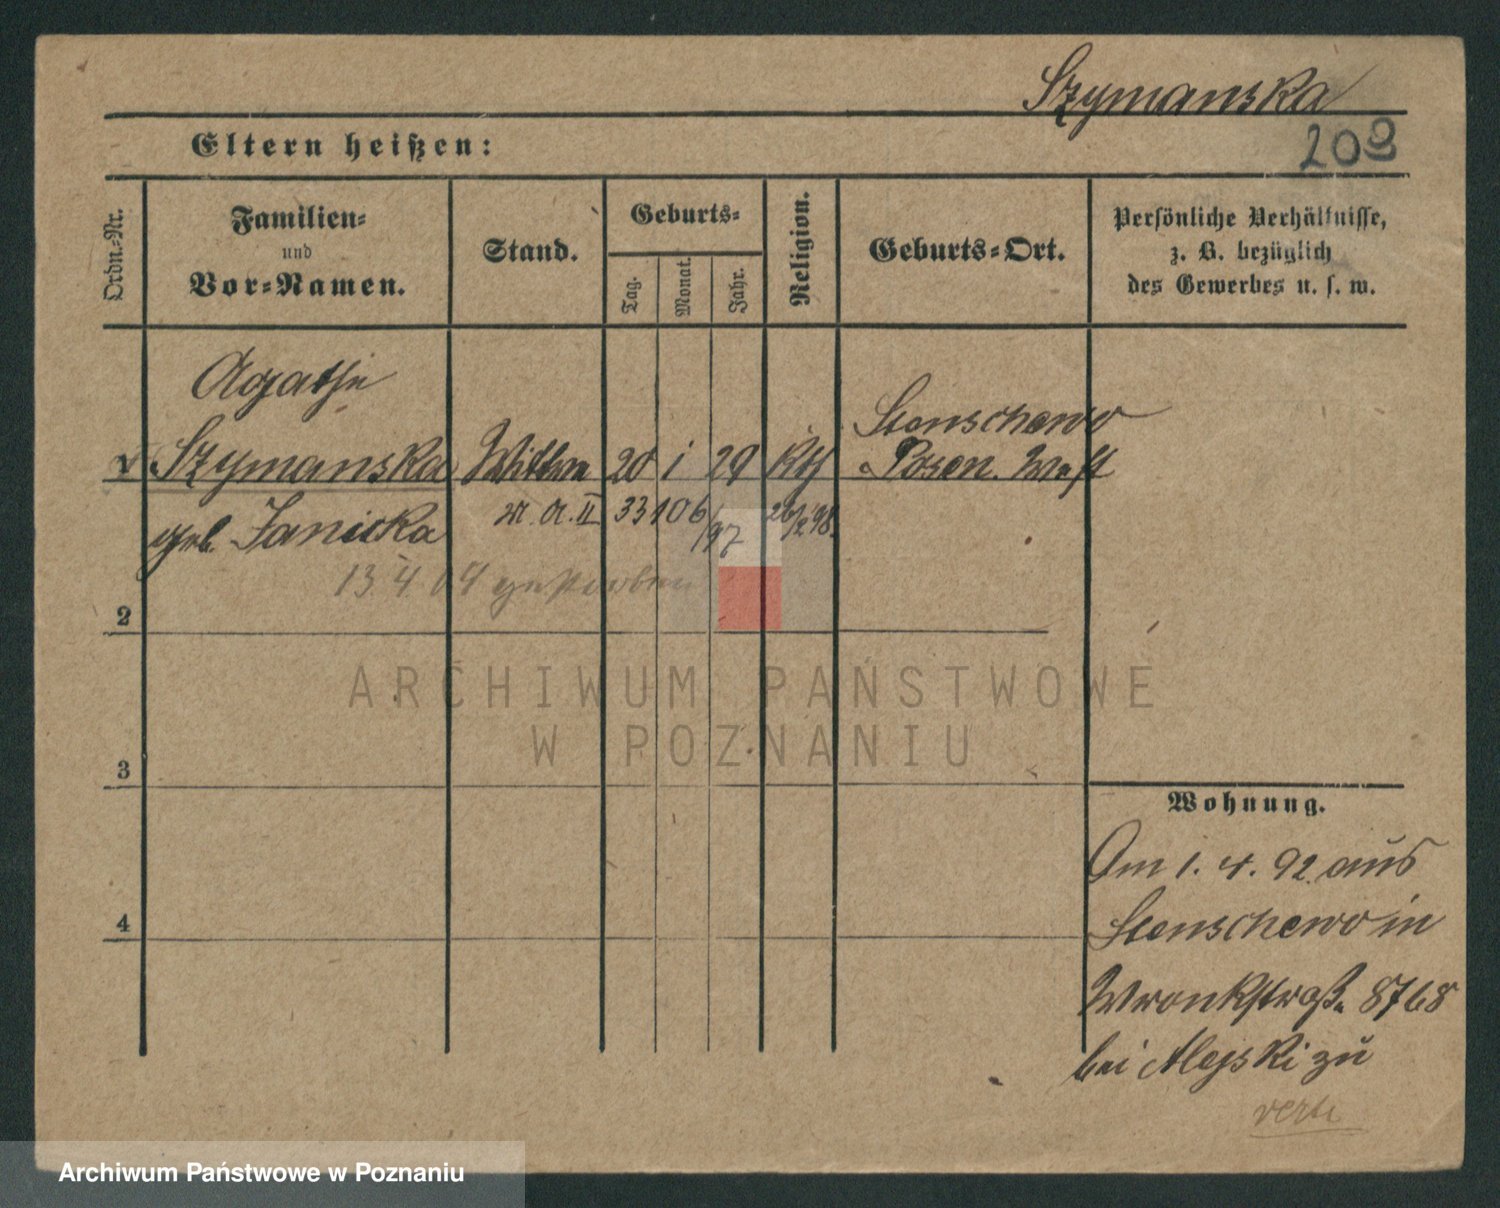 Szymanska
209
Eltern heißen:
Ordn.-Nr.
Familien-
und
Vor-Namen.
Stand.
Geburts-
Tag.
Monat.
Jahr.
Religion.
Geburts-Ort.
Persönliche Verhältnisse,
z. B. bezüglich
des Gewerbes u. s. w.
Agathe
Stenschewo
1 Szymanska Wittwe 20 1 29 Kth Posen. West
geb. Janicka A. II 33106/97 26/2 98.
13 4 04 gestorben
2
ARCHIWUM PAŃSTWOWE
W POZNANIU
3
Wohnung.
Am 1. 4. 92 aus
4
Stenschewo in
Wronkstraße 8768
bei Alejski zu
verte
Archiwum Państwowe w Poznaniu